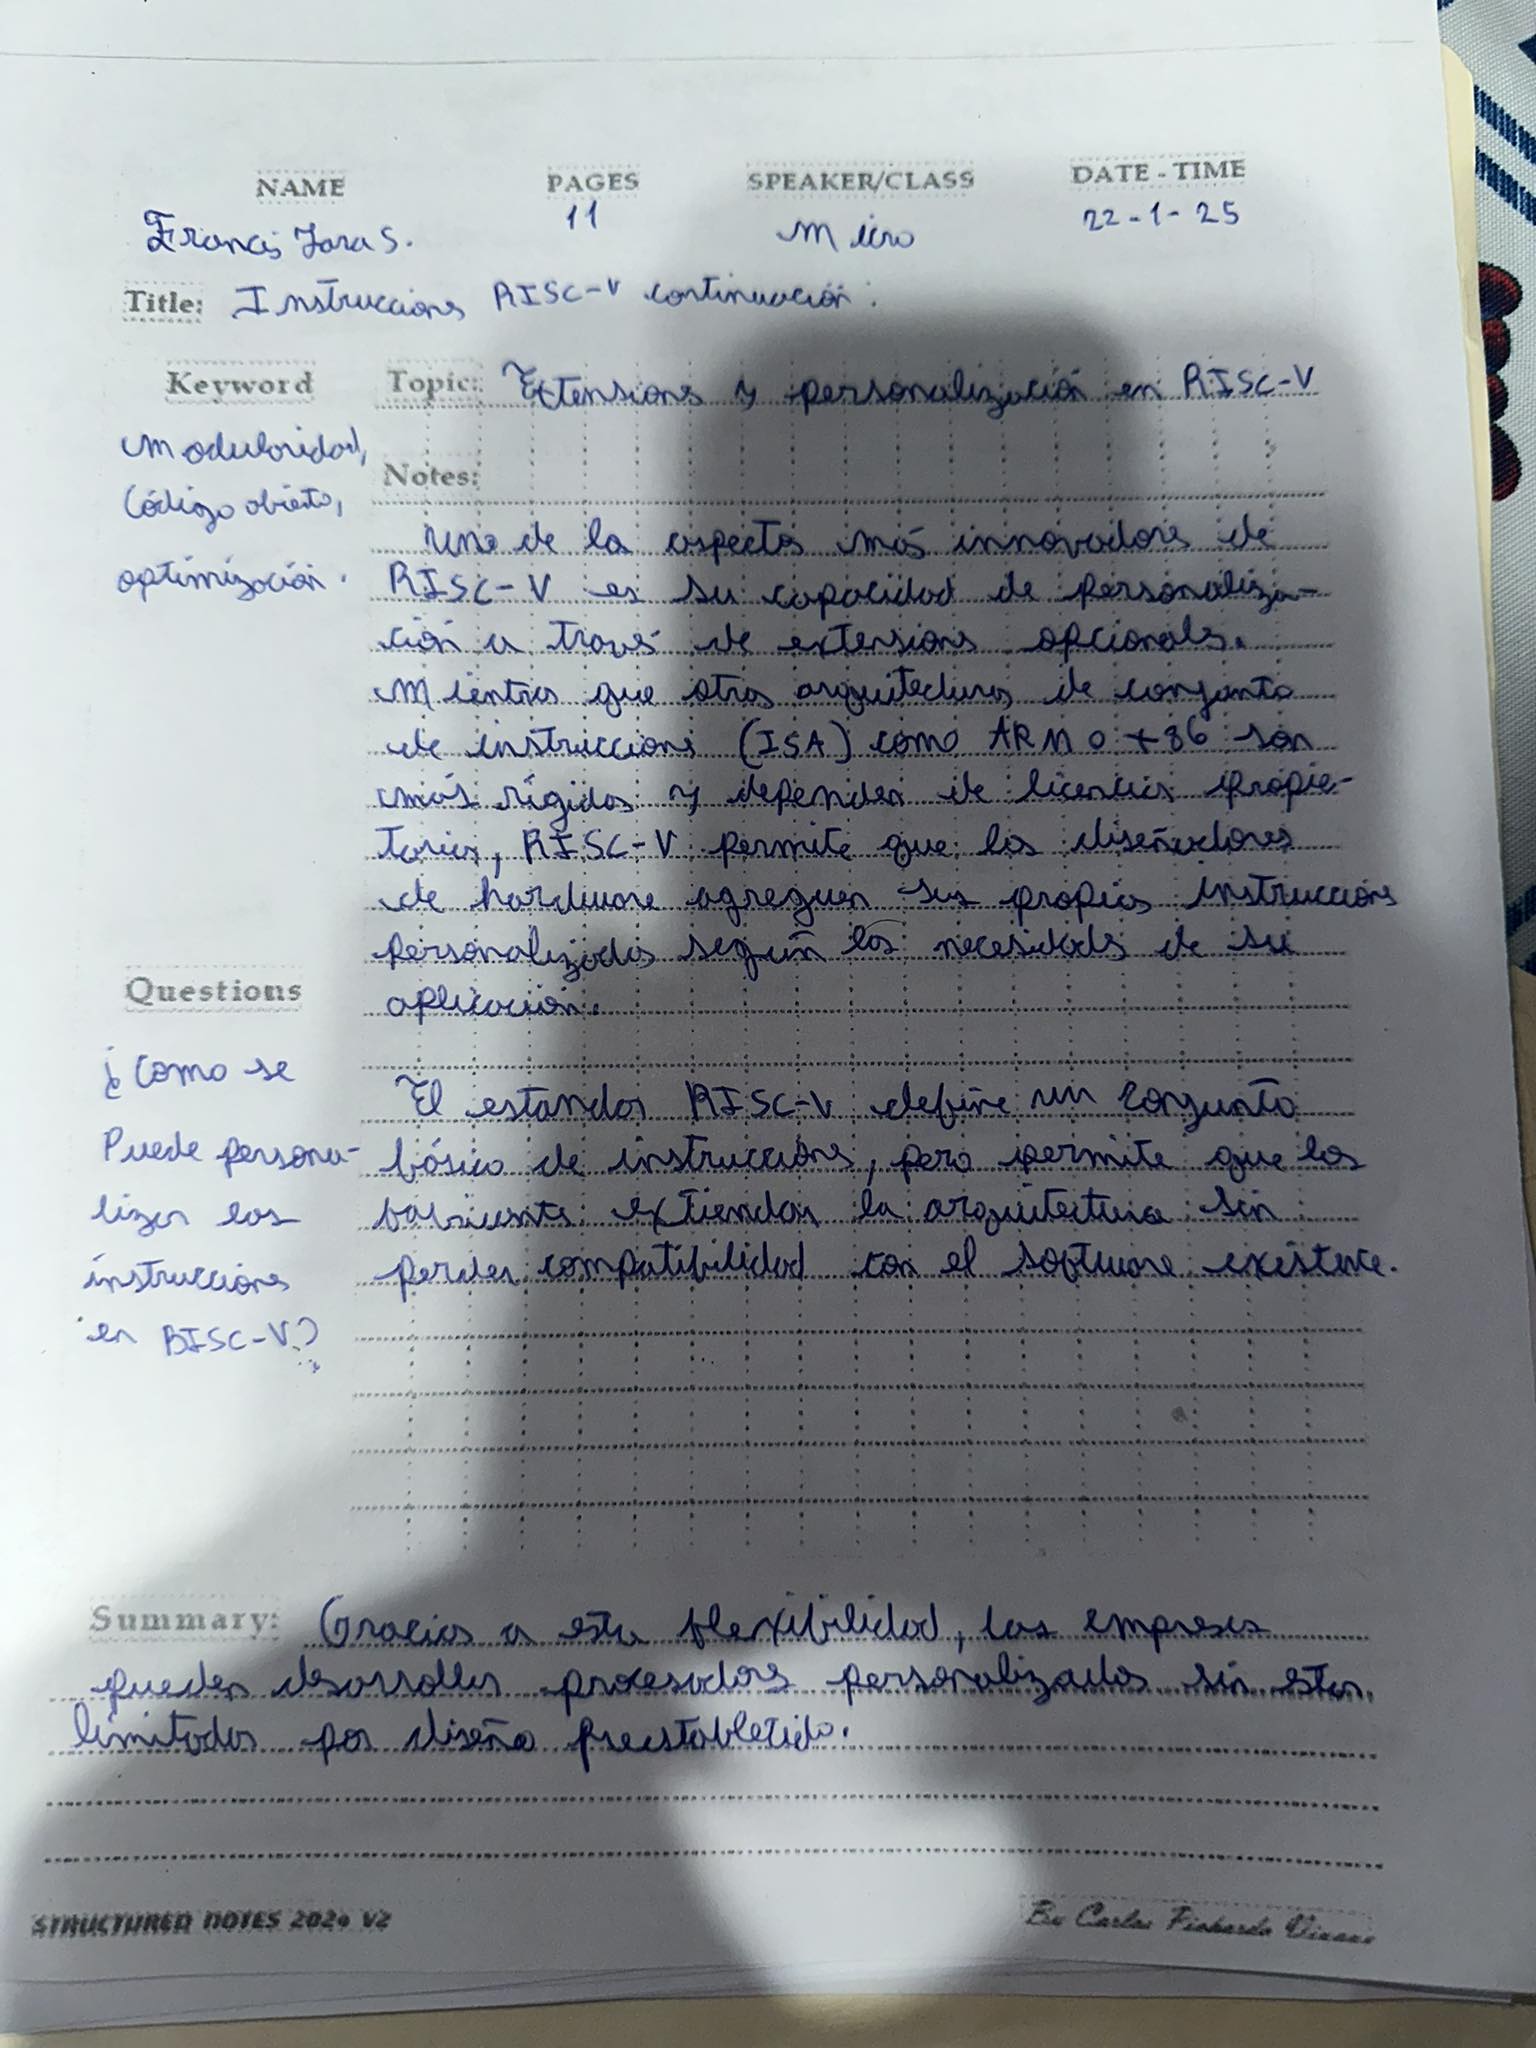 NAME PAGES SPEAKER/CLASS DATE - TIME
Francis Jara S. 11 Micro 22-1-25
Title: Instrucciones RISC-V continuación:
Keyword
Modularidad,
Código abierto,
optimización.
Topic: Extensiones y personalización en RISC-V
Notes:
Uno de los aspectos más innovadores de
RISC-V es su capacidad de personaliza-
ción a través de extensiones opcionales.
Mientras que otras arquitecturas de conjunto
de instrucciones (ISA) como ARM o x86 son
más rígidas y dependen de licencias propie-
tarias, RISC-V permite que los diseñadores
de hardware agreguen sus propias instrucciones
personalizadas según las necesidades de su
aplicación.
El estandar RISC-V define un conjunto
básico de instrucciones, pero permite que los
fabricantes extiendan la arquitectura sin
perder compatibilidad con el software existente.
Questions
¿Como se
Puede persona-
lizar las
instrucciones
en RISC-V?
Summary: Gracias a esta flexibilidad, las empresas
pueden desarrollar procesadores personalizados sin estar
limitados por diseño preestablecido.
STRUCTURED NOTES 2024 V2
By Carlos Pichardo Viuque